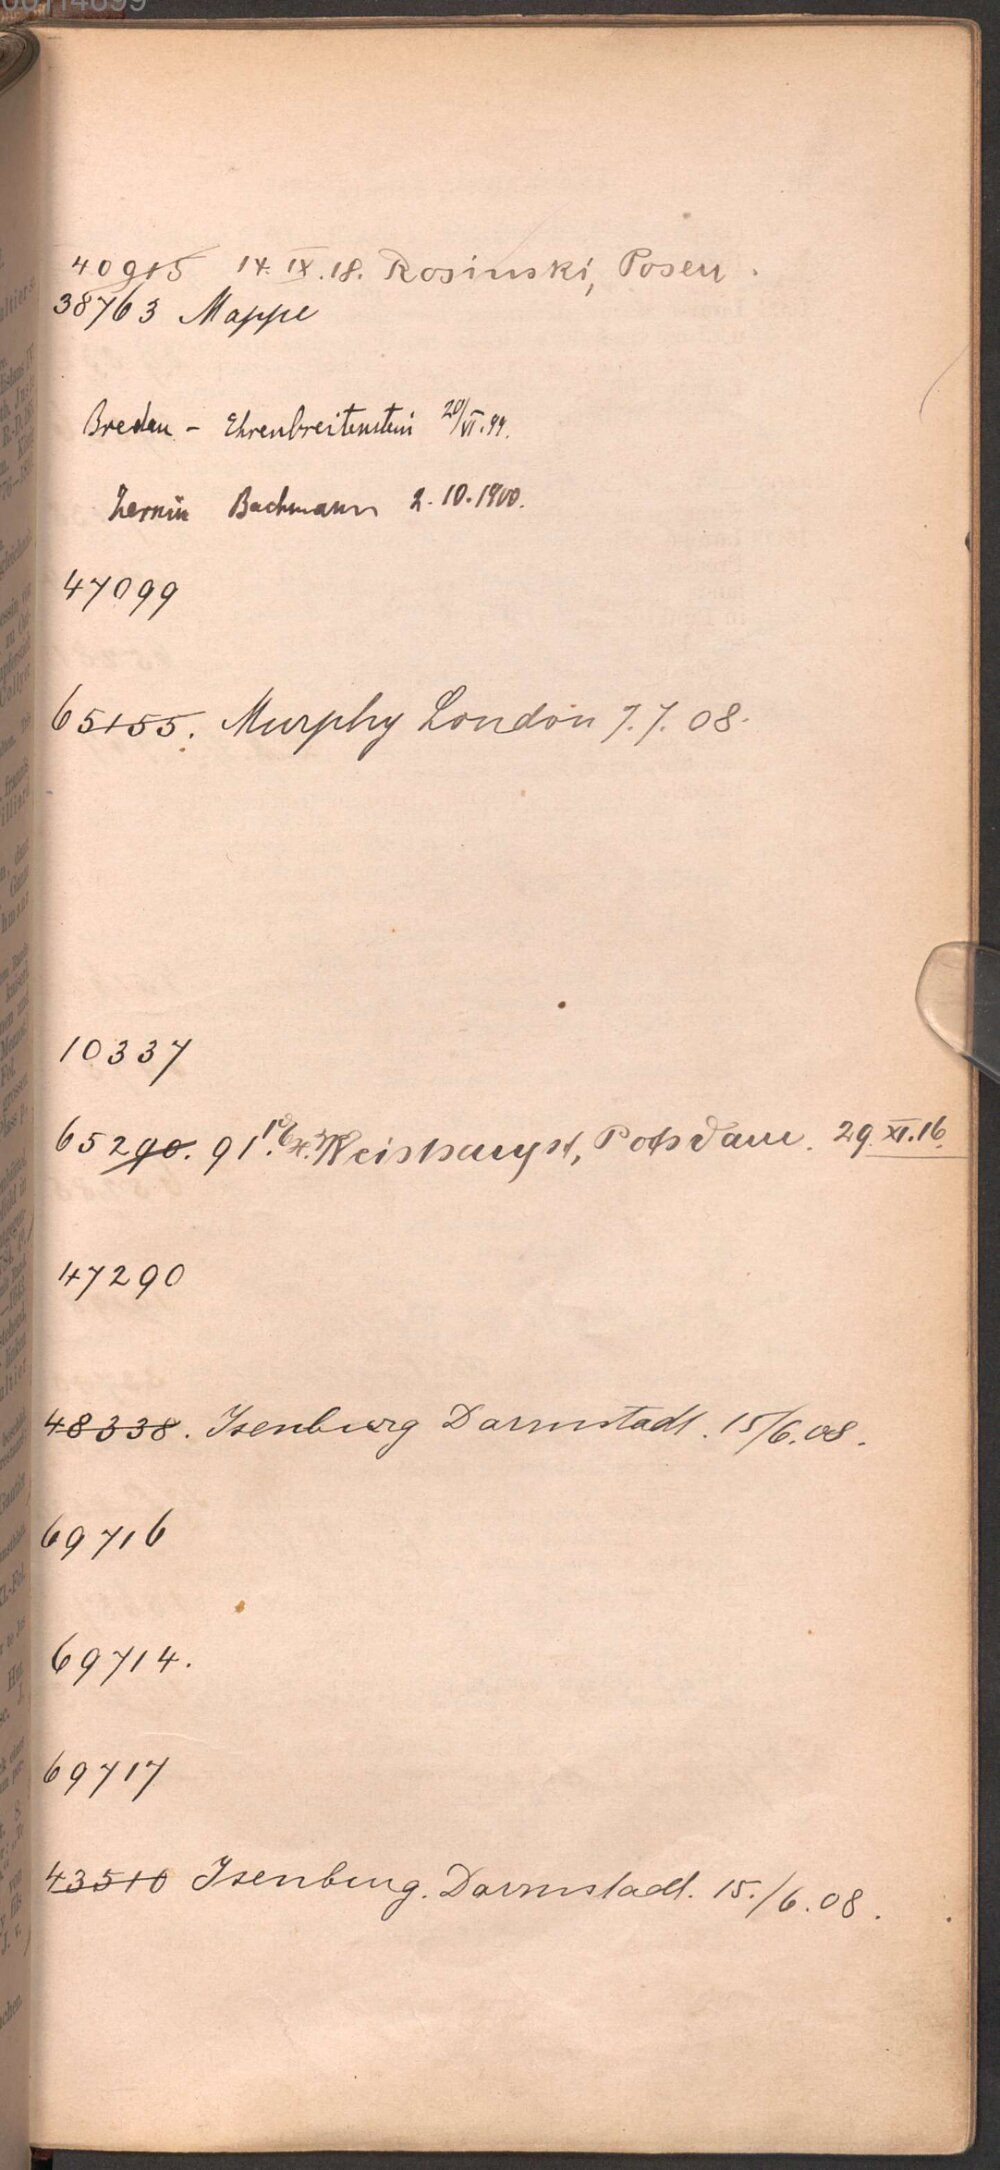 40915 14. IX. 18. Rosinski, Posen.
38763 Mappe
Breden - Ehrenbreitenstein 20/VI. 99.
Zernin Bachmann 2. 10. 1900.
47099
65155. Murphy London 7. 7. 08.
10337
65290. 91. Weishaupt, Potsdam. 29. XI. 16.
47290
48338. Isenburg Darmstadt. 15/6. 08.
69716
69714.
69717
43510 Isenburg. Darmstadt. 15./6. 08.